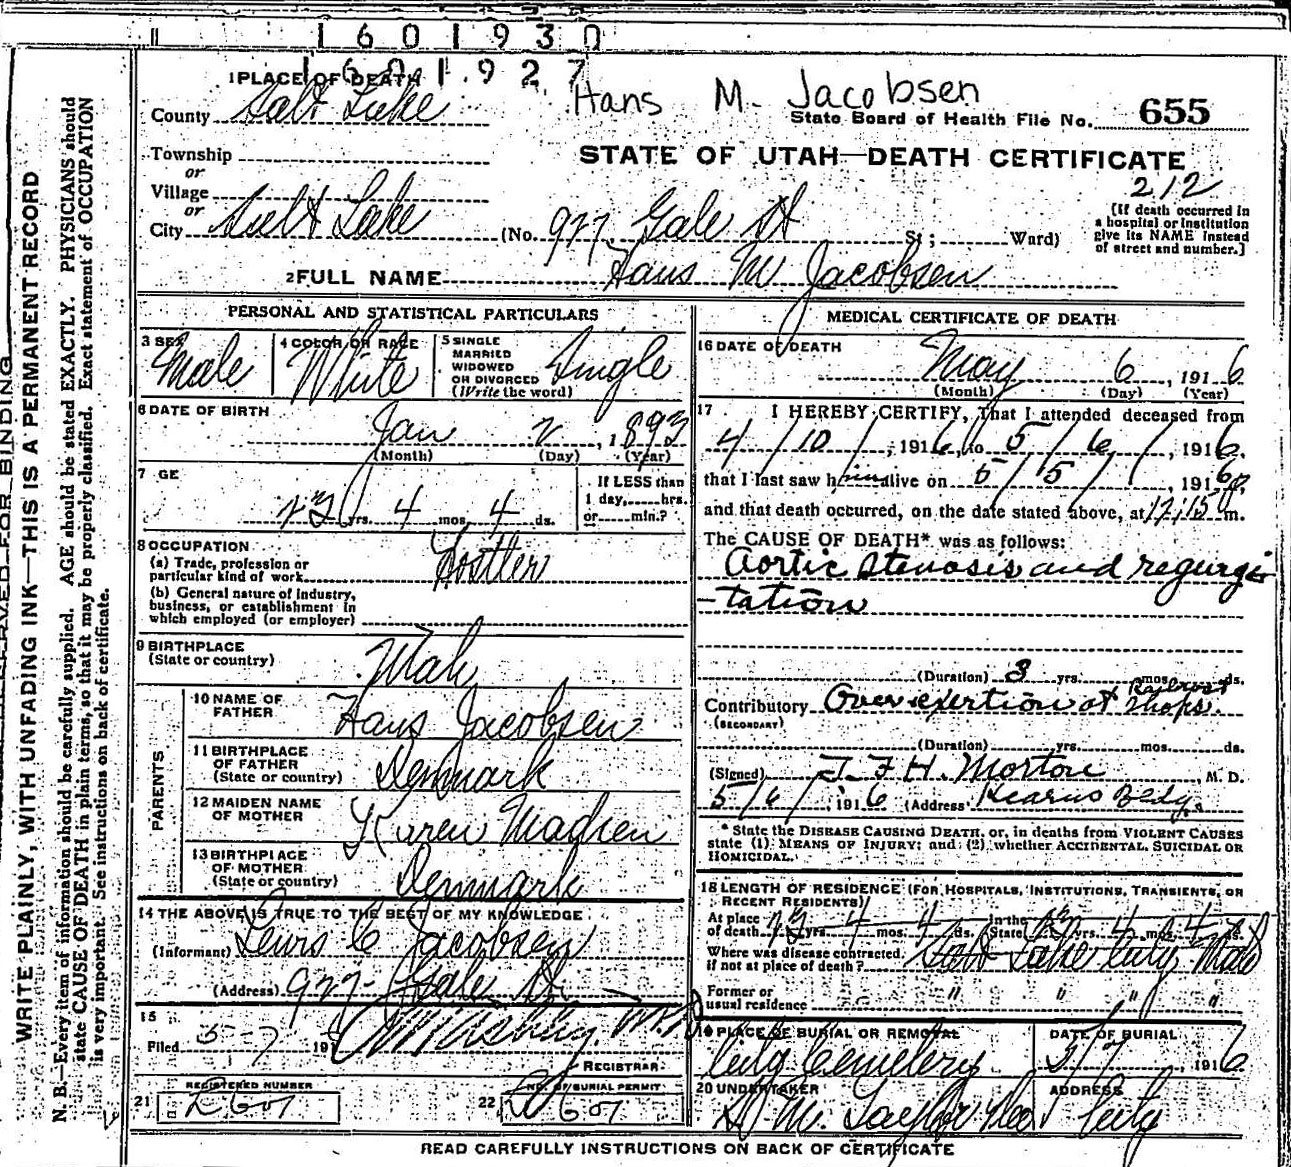 1601930
1601927
1 PLACE OF DEATH
Hans M. Jacobsen
County Salt Lake
State Board of Health File No. 655
Township
or
Village
or
City Salt Lake
STATE OF UTAH—DEATH CERTIFICATE
212
(No. 977 Gale St St; Ward)
[If death occurred in
a hospital or institution
give its NAME instead
of street and number.]
2 FULL NAME Hans M Jacobsen
PERSONAL AND STATISTICAL PARTICULARS
3 SEX Male
4 COLOR OR RACE White
5 SINGLE
MARRIED
WIDOWED
OR DIVORCED
(Write the word) Single
6 DATE OF BIRTH
Jan 2, 1893
(Month) (Day) (Year)
7 GE
23 yrs. 4 mos. 4 ds.
If LESS than
1 day, hrs.
or min.?
8 OCCUPATION
(a) Trade, profession or
particular kind of work Hostler
(b) General nature of industry,
business, or establishment in
which employed (or employer)
9 BIRTHPLACE
(State or country) Utah
PARENTS
10 NAME OF
FATHER Hans Jacobsen
11 BIRTHPLACE
OF FATHER
(State or country) Denmark
12 MAIDEN NAME
OF MOTHER Karen Madsen
13 BIRTHPLACE
OF MOTHER
(State or country) Denmark
14 THE ABOVE IS TRUE TO THE BEST OF MY KNOWLEDGE
(Informant) Lewis C Jacobsen
(Address) 977 Gale St
15
Filed 5-7 191
REGISTRAR
REGISTERED NUMBER
21
NO. OF BURIAL PERMIT
22
MEDICAL CERTIFICATE OF DEATH
16 DATE OF DEATH
May 6, 1916
(Month) (Day) (Year)
17 I HEREBY CERTIFY, That I attended deceased from
4/10/, 1916, to 5/6/, 1916.
that I last saw him alive on 5/5/, 1916,
and that death occurred, on the date stated above, at 12:15 P m.
The CAUSE OF DEATH* was as follows:
Aortic stenosis and regurgi
-tation
(Duration) 3 yrs. mos. ds.
Contributory Over exertion at Railroad Shops.
(SECONDARY)
(Duration) yrs. mos. ds.
(Signed) T. F. H. Morton, M. D.
5/6/, 1916 (Address) Kearns Bldg.
* State the DISEASE CAUSING DEATH, or, in deaths from VIOLENT CAUSES
state (1) MEANS OF INJURY; and (2) whether ACCIDENTAL, SUICIDAL OR
HOMICIDAL.
18 LENGTH OF RESIDENCE (FOR HOSPITALS, INSTITUTIONS, TRANSIENTS, OR
RECENT RESIDENTS)
At place
of death 23 yrs. 4 mos. 4 ds. In the State 23 yrs. 4 mos. 4 ds.
Where was disease contracted,
if not at place of death? Salt Lake City Utah
Former or
usual residence " " " "
19 PLACE OF BURIAL OR REMOVAL
City Cemetery
DATE OF BURIAL
5/7, 1916
20 UNDERTAKER
ADDRESS
City
READ CAREFULLY INSTRUCTIONS ON BACK OF CERTIFICATE
WRITE PLAINLY, WITH UNFADING INK—THIS IS A PERMANENT RECORD
N. B.—Every item of information should be carefully supplied. AGE should be stated EXACTLY. PHYSICIANS should
state CAUSE OF DEATH in plain terms, so that it may be properly classified. Exact statement of OCCUPATION
is very important. See instructions on back of certificate.
FOR BINDING